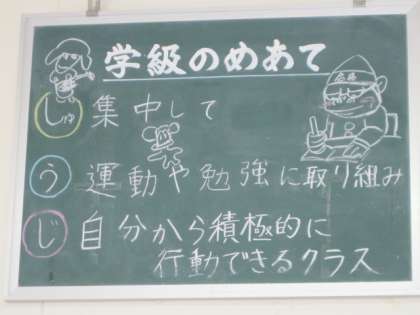 学級のめあて
しゅ 集中して
う 運動や勉強に取り組み
じ 自分から積極的に
行動できるクラス